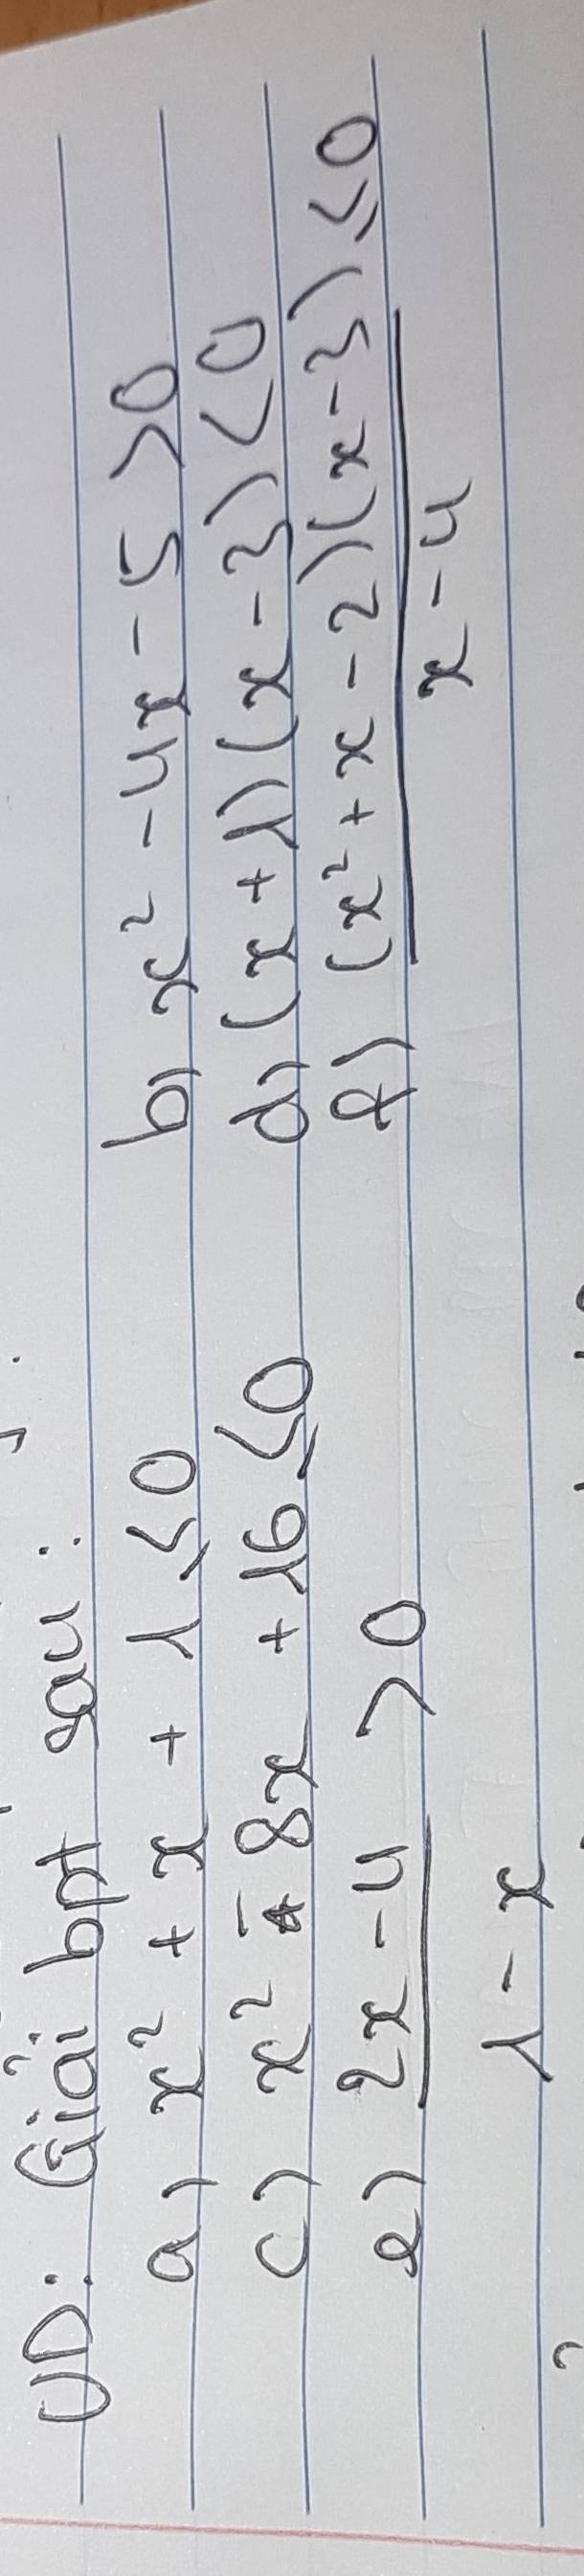 VD: Giải bpt sau:
a) x² + x + 1 ≤ 0 b) x² - 4x - 5 > 0
c) x² - 8x + 16 ≤ 0 d) (x + 1)(x - 3) < 0
e) 2x - 4 > 0 f) (x² + x - 2)(x - 3) ≤ 0
1 - x x - 4